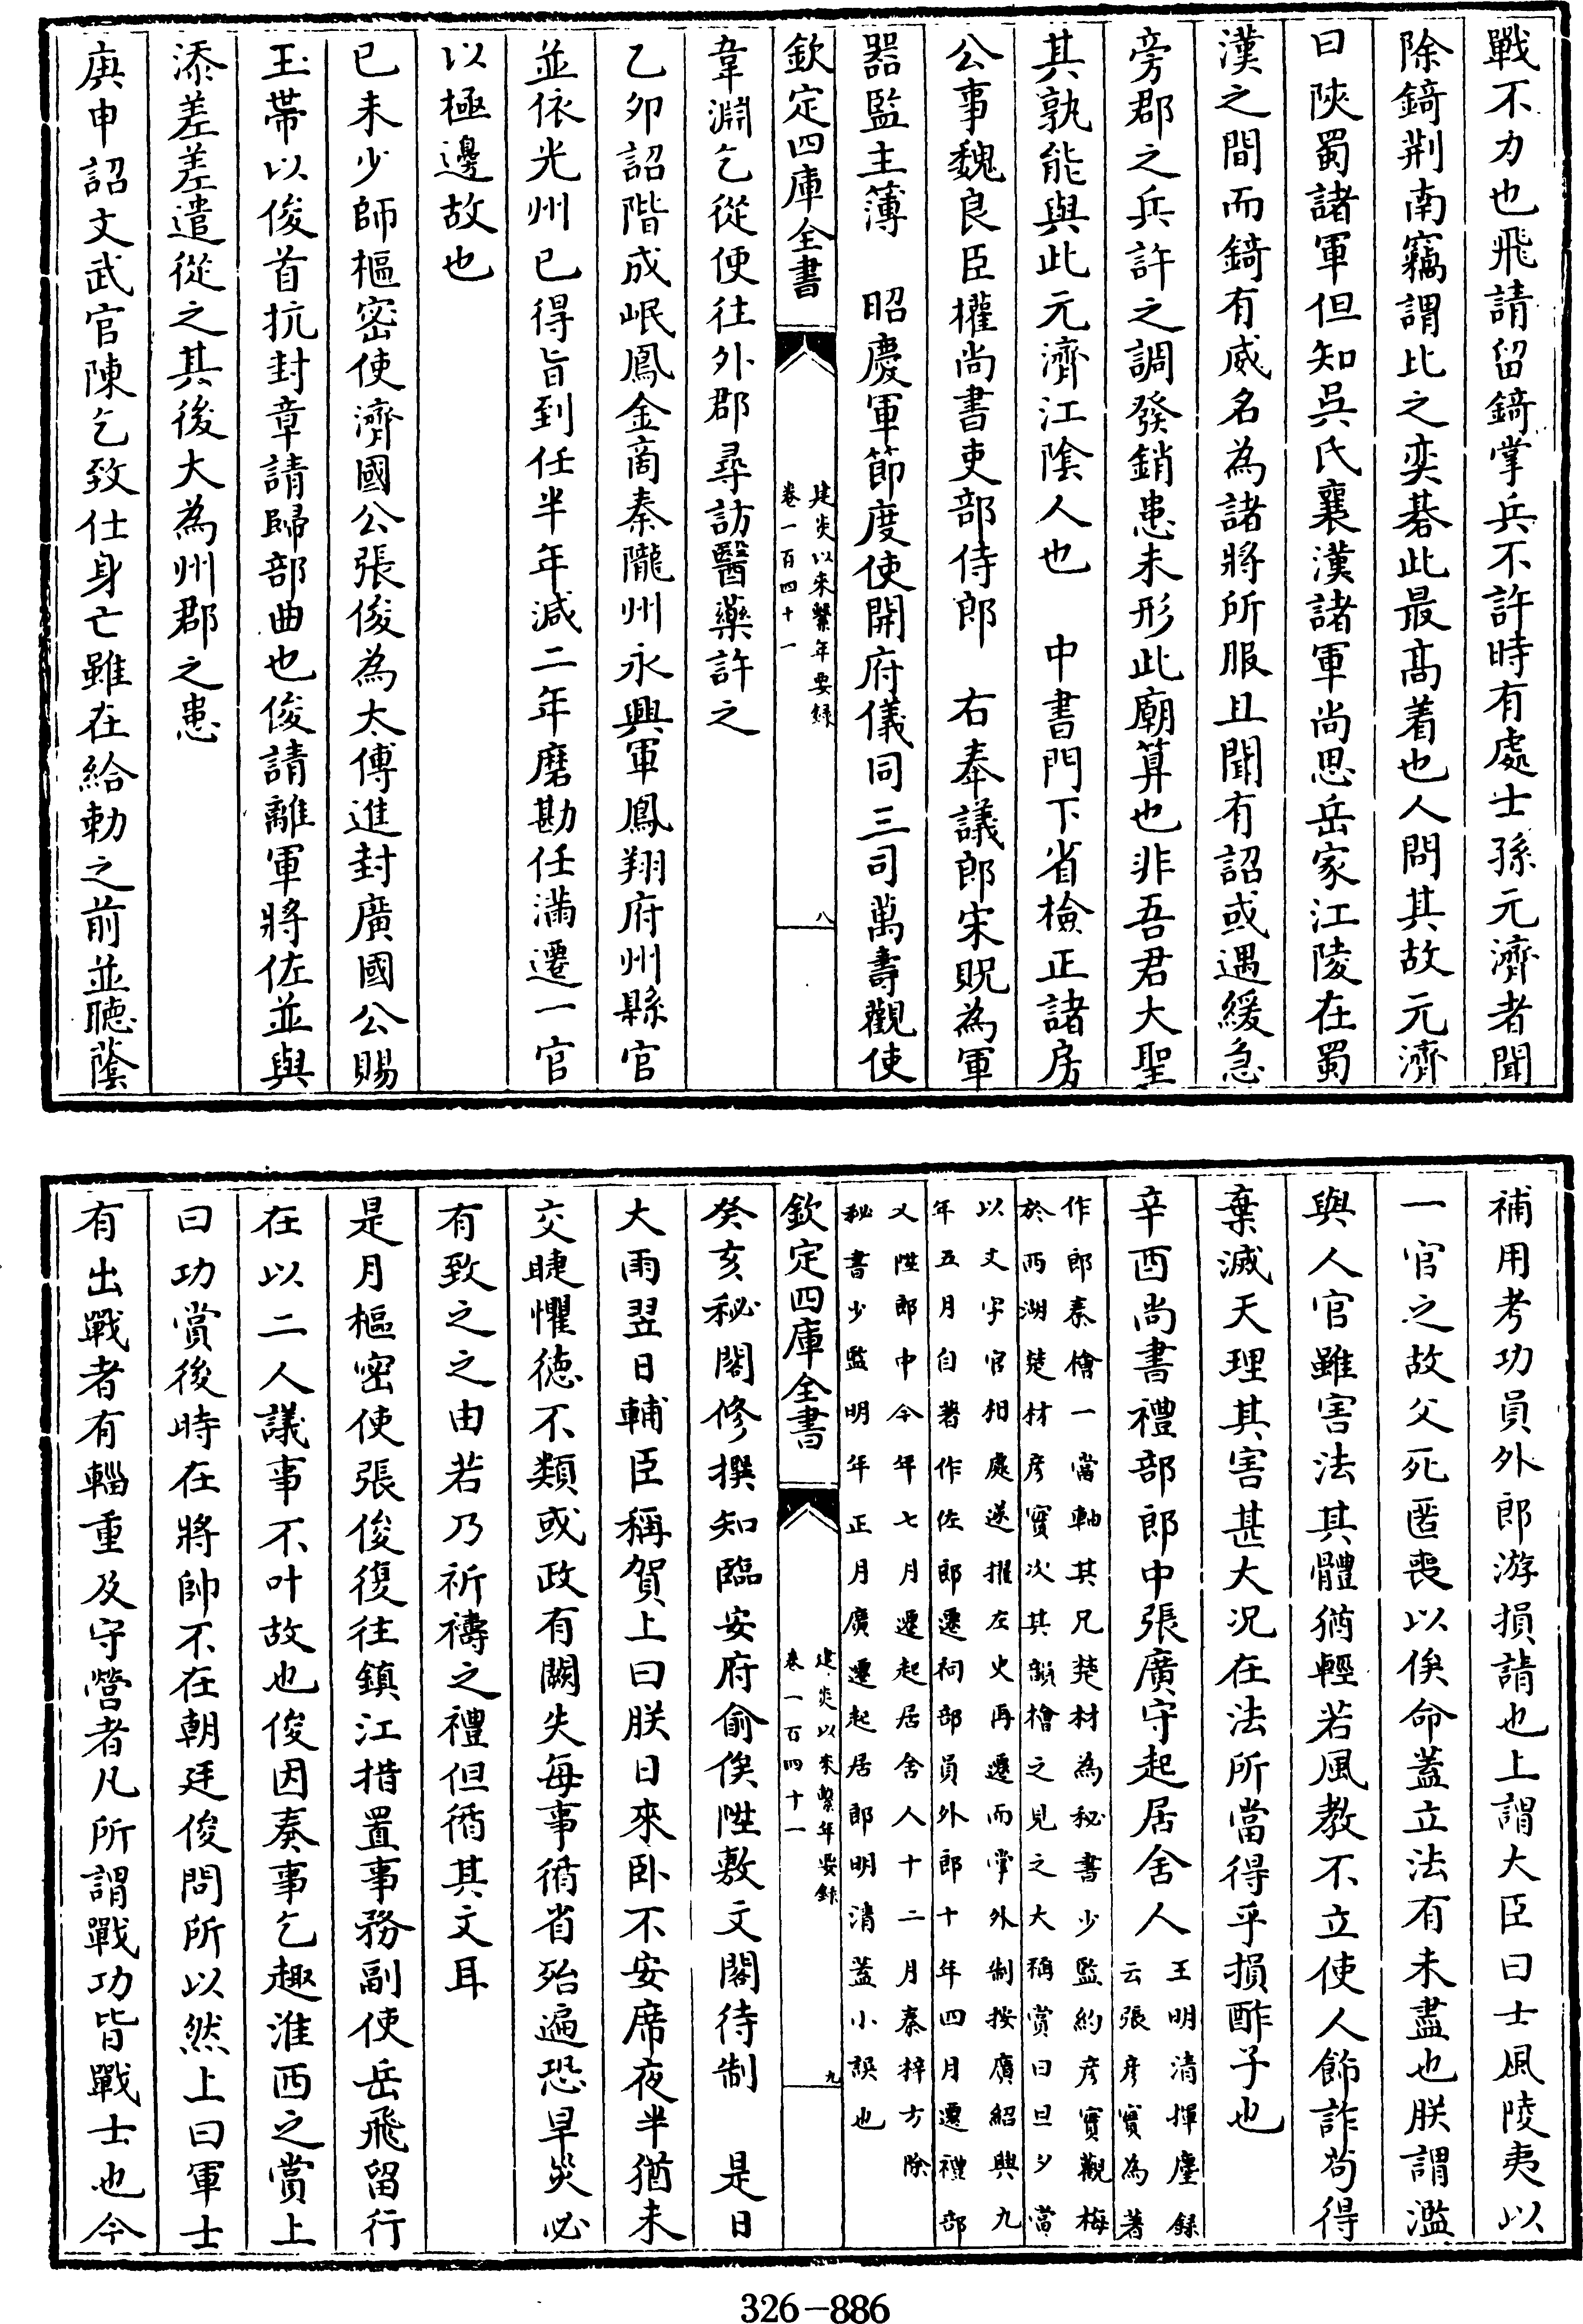 戰不力也飛請留錡掌兵不許時有處士孫元濟者聞
除錡荆南竊謂比之奕碁此最髙着也人問其故元濟
曰陜蜀諸軍但知吳氏襄漢諸軍尚思岳家江陵在蜀
漢之間而錡有威名為諸將所服且聞有詔或遇緩急
旁郡之兵許之調發銷患未形此廟算也非吾君大聖
其孰能與此元濟江陰人也　中書門下省檢正諸房
公事魏良臣權尚書吏部侍郎　右奉議郎宋貺為軍
器監主簿　昭慶軍節度使開府儀同三司萬壽觀使
欽定四庫全書　建炎以來繫年要録　卷一百四十一　八
韋淵乞從便往外郡尋訪醫藥許之
乙卯詔階成岷鳳金商秦隴州永興軍鳳翔府州縣官
並依光州已得旨到任半年減二年磨勘任滿遷一官
以極邊故也
已未少師樞密使濟國公張俊為太傅進封廣國公賜
玉帶以俊首抗封章請歸部曲也俊請離軍將佐並與
添差差遣從之其後大為州郡之患
庚申詔文武官陳乞致仕身亡雖在給勅之前並聽蔭
補用考功員外郎游損請也上謂大臣曰士風陵夷以
一官之故父死匿喪以俟命蓋立法有未盡也朕謂濫
與人官雖害法其體猶輕若風教不立使人飾詐苟得
棄滅天理其害甚大况在法所當得乎損酢子也
辛酉尚書禮部郎中張廣守起居舍人王明清揮麈録
云張彦實為著
作郎秦檜一當軸其兄楚材為秘書少監約彦實觀梅
於西湖楚材彦實次其韻檜之見之大稱賞曰旦夕當
以文字官相處遂擢左史再遷而掌外制按廣紹興九
年五月自著作佐郎遷祠部員外郎十年四月遷禮部
又陞郎中今年七月遷起居舍人十二月秦梓方除
秘書少監明年正月廣遷起居郎明清蓋小誤也
欽定四庫全書　建炎以來繫年要録　卷一百四十一　九
癸亥秘閣修撰知臨安府俞俟陞敷文閣待制　是日
大雨翌日輔臣稱賀上曰朕日來卧不安席夜半猶未
交睫懼德不類或政有闕失每事循省殆遍恐旱災必
有致之之由若乃祈禱之禮但循其文耳
是月樞密使張俊復往鎮江措置事務副使岳飛留行
在以二人議事不叶故也俊因奏事乞趣淮西之賞上
曰功賞後時在將帥不在朝廷俊問所以然上曰軍士
有出戰者有輜重及守營者凡所謂戰功皆戰士也今
326-886